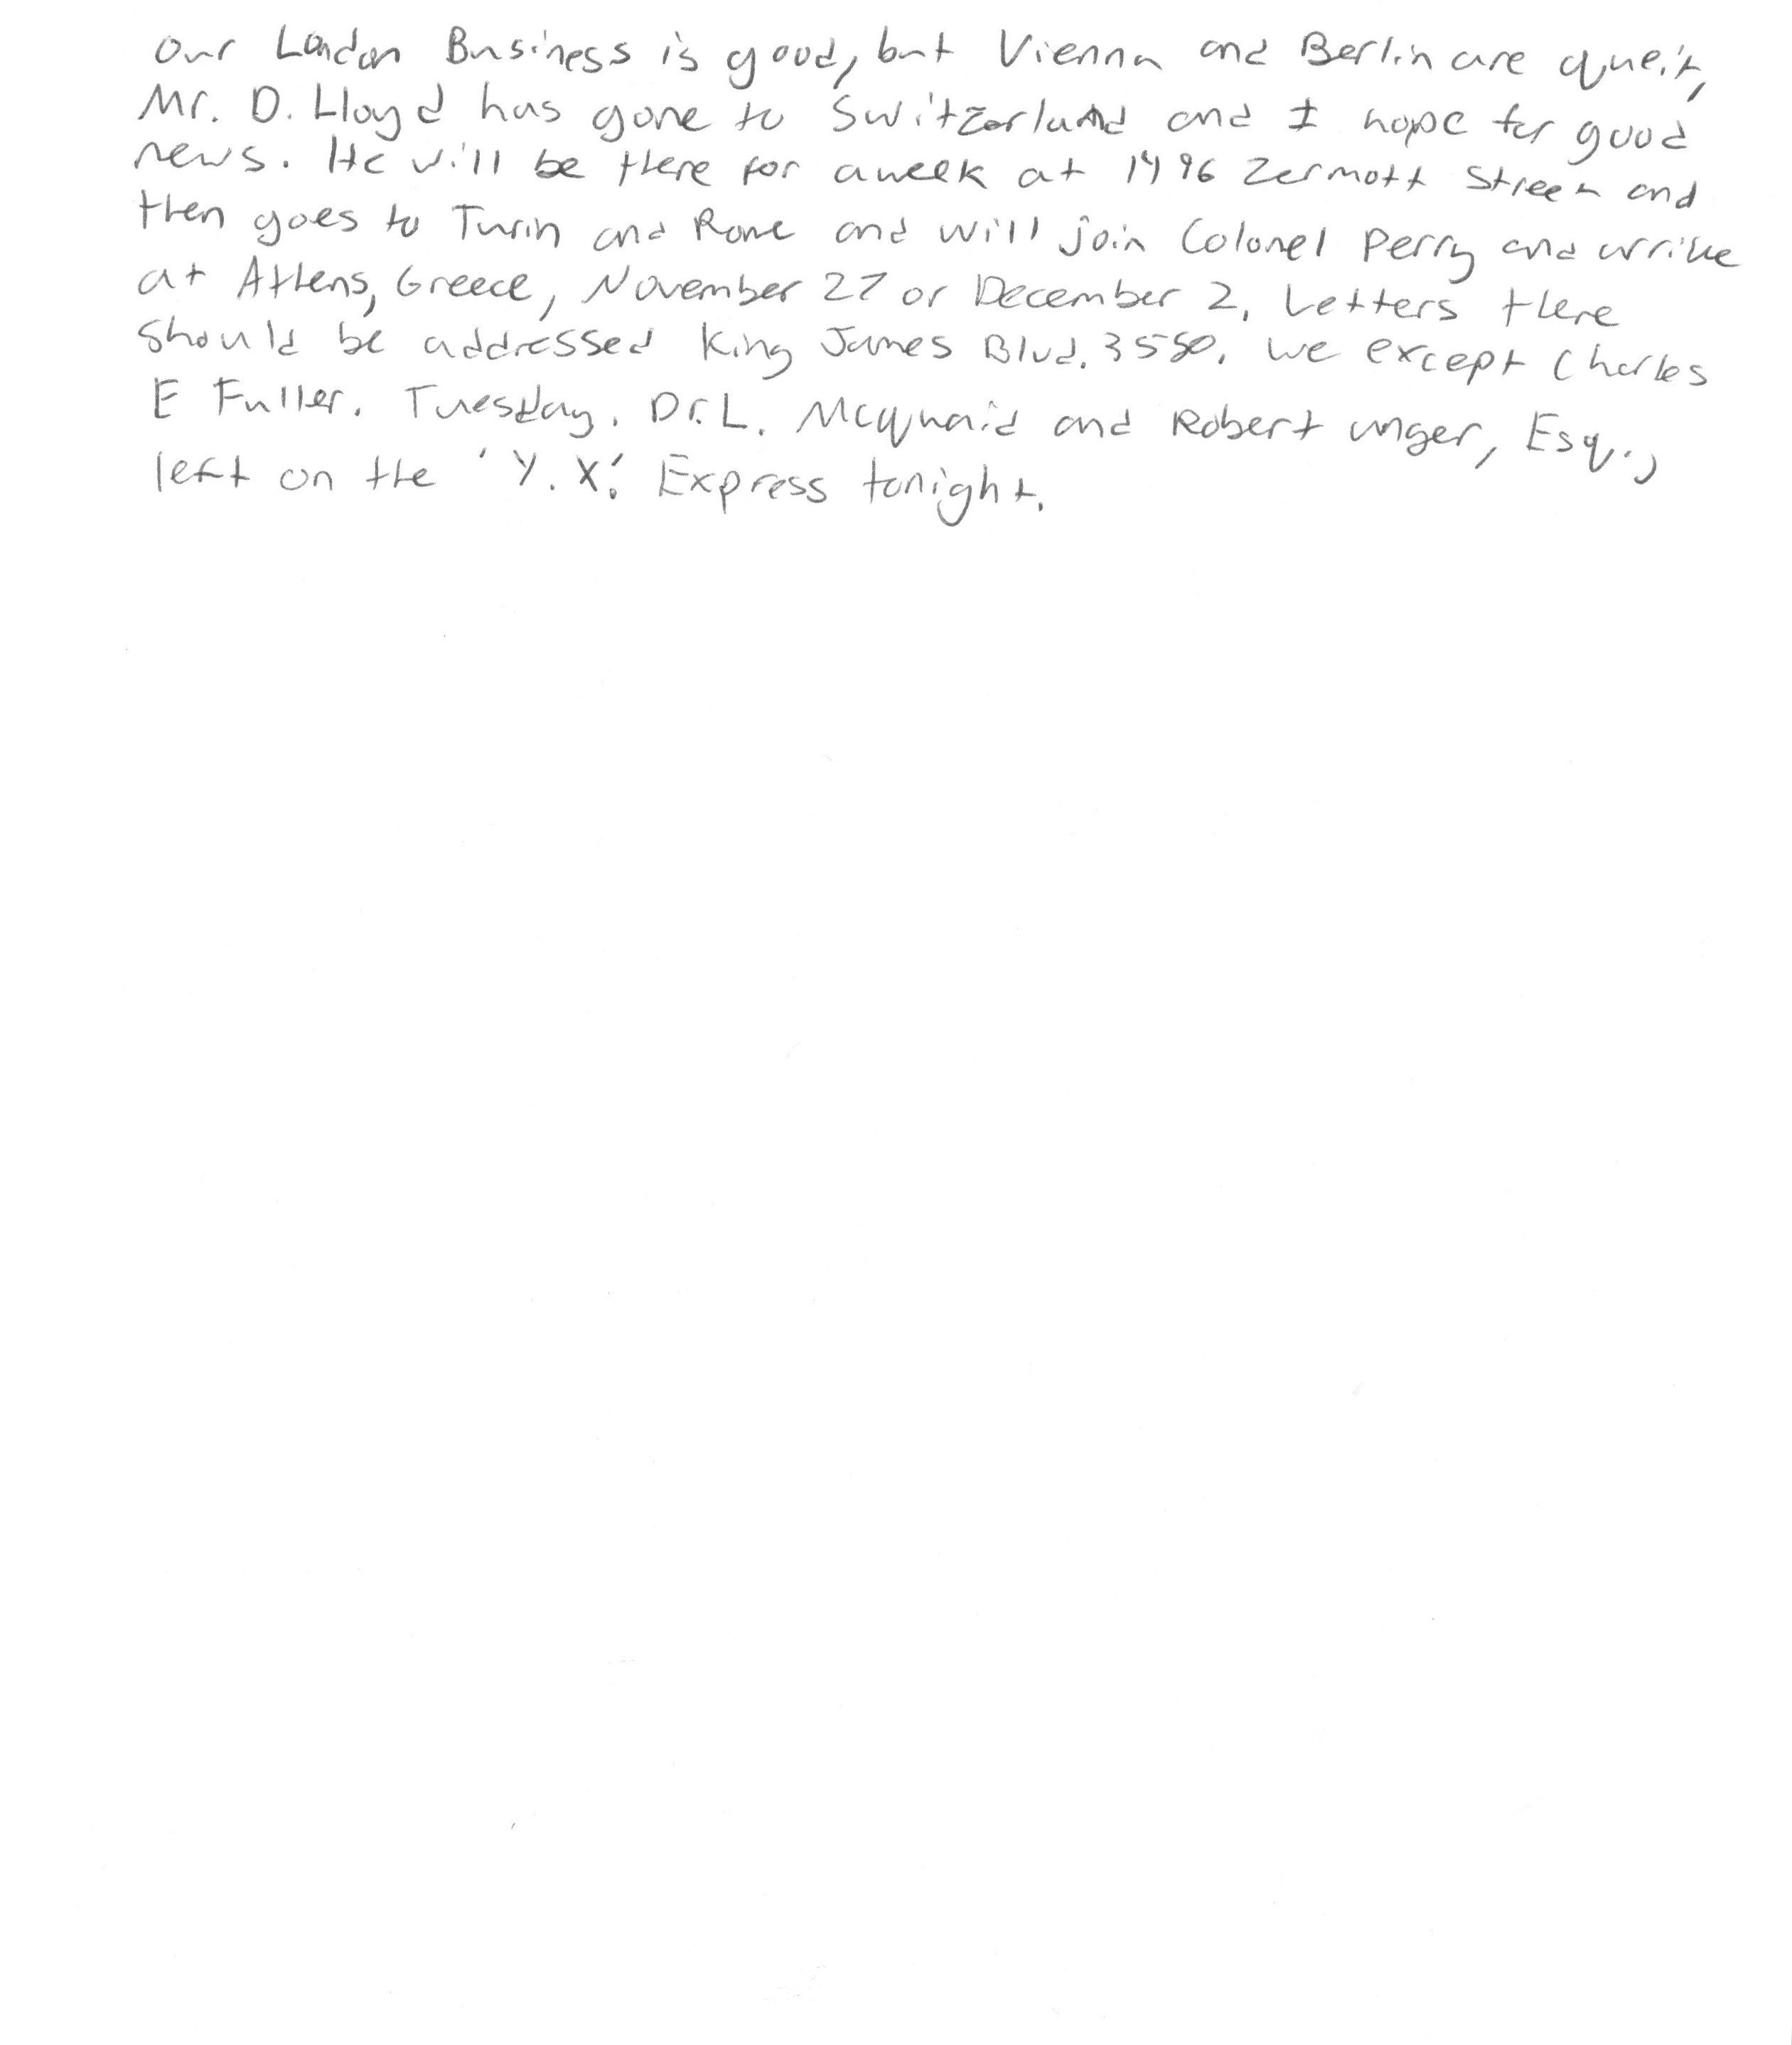 Our London Business is good, but Vienna and Berlin are queit,
Mr. D. Lloyd has gone to Switzerland and I hope for good
news. He will be there for a week at 1496 Zermott Street and
then goes to Turin and Rome and will join Colonel Perry and arrive
at Athens, Greece, November 27 or December 2. Letters there
should be addressed King James Blvd. 3550. We except Charles
E Fuller. Tuesday. Dr. L. McQuaid and Robert Unger, Esq.,
left on the 'Y.X.' Express tonight.